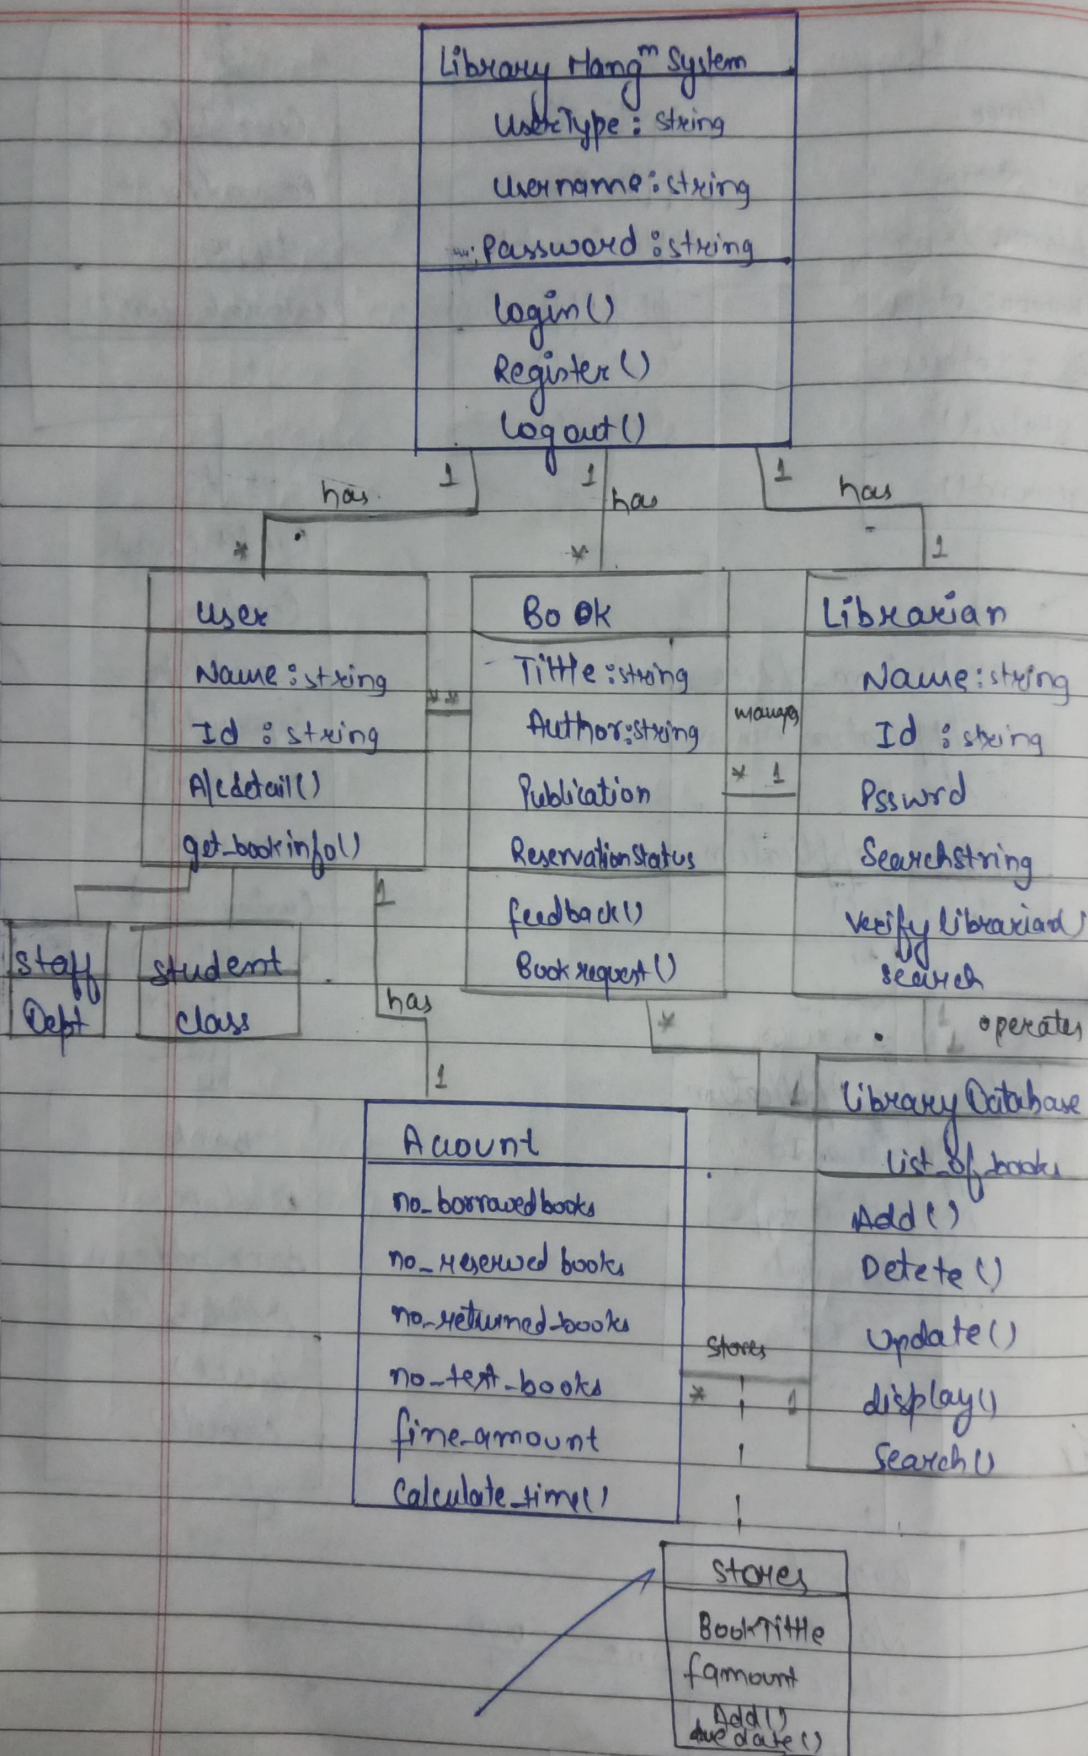 Library Mang^m System
UserType : string
Username : string
Password : string
login()
Register()
Logout()
1
1
1
has
has
has
*
*
1
User
Name : string
Id : string
A/cdetail()
get_bookinfo()
* *
Book
Tittle : string
Author : string
Publication
Reservationstatus
feedback()
Book request()
manages
* 1
Librarian
Name : string
Id : string
Psswrd
Searchstring
Verify librarian()
Search
Staff
Dept
Student
Class
1
has
1
*
1
1
1
operates
Library Database
List_of_books
Add()
Detete()
Update()
display()
Search()
Acount
no_borrowedbooks
no_reserved books
no_returned_books
no_test_books
fine_amount
Calculate_time()
Stores
* 1
Stores
BookTittle
famount
Add()
due date()